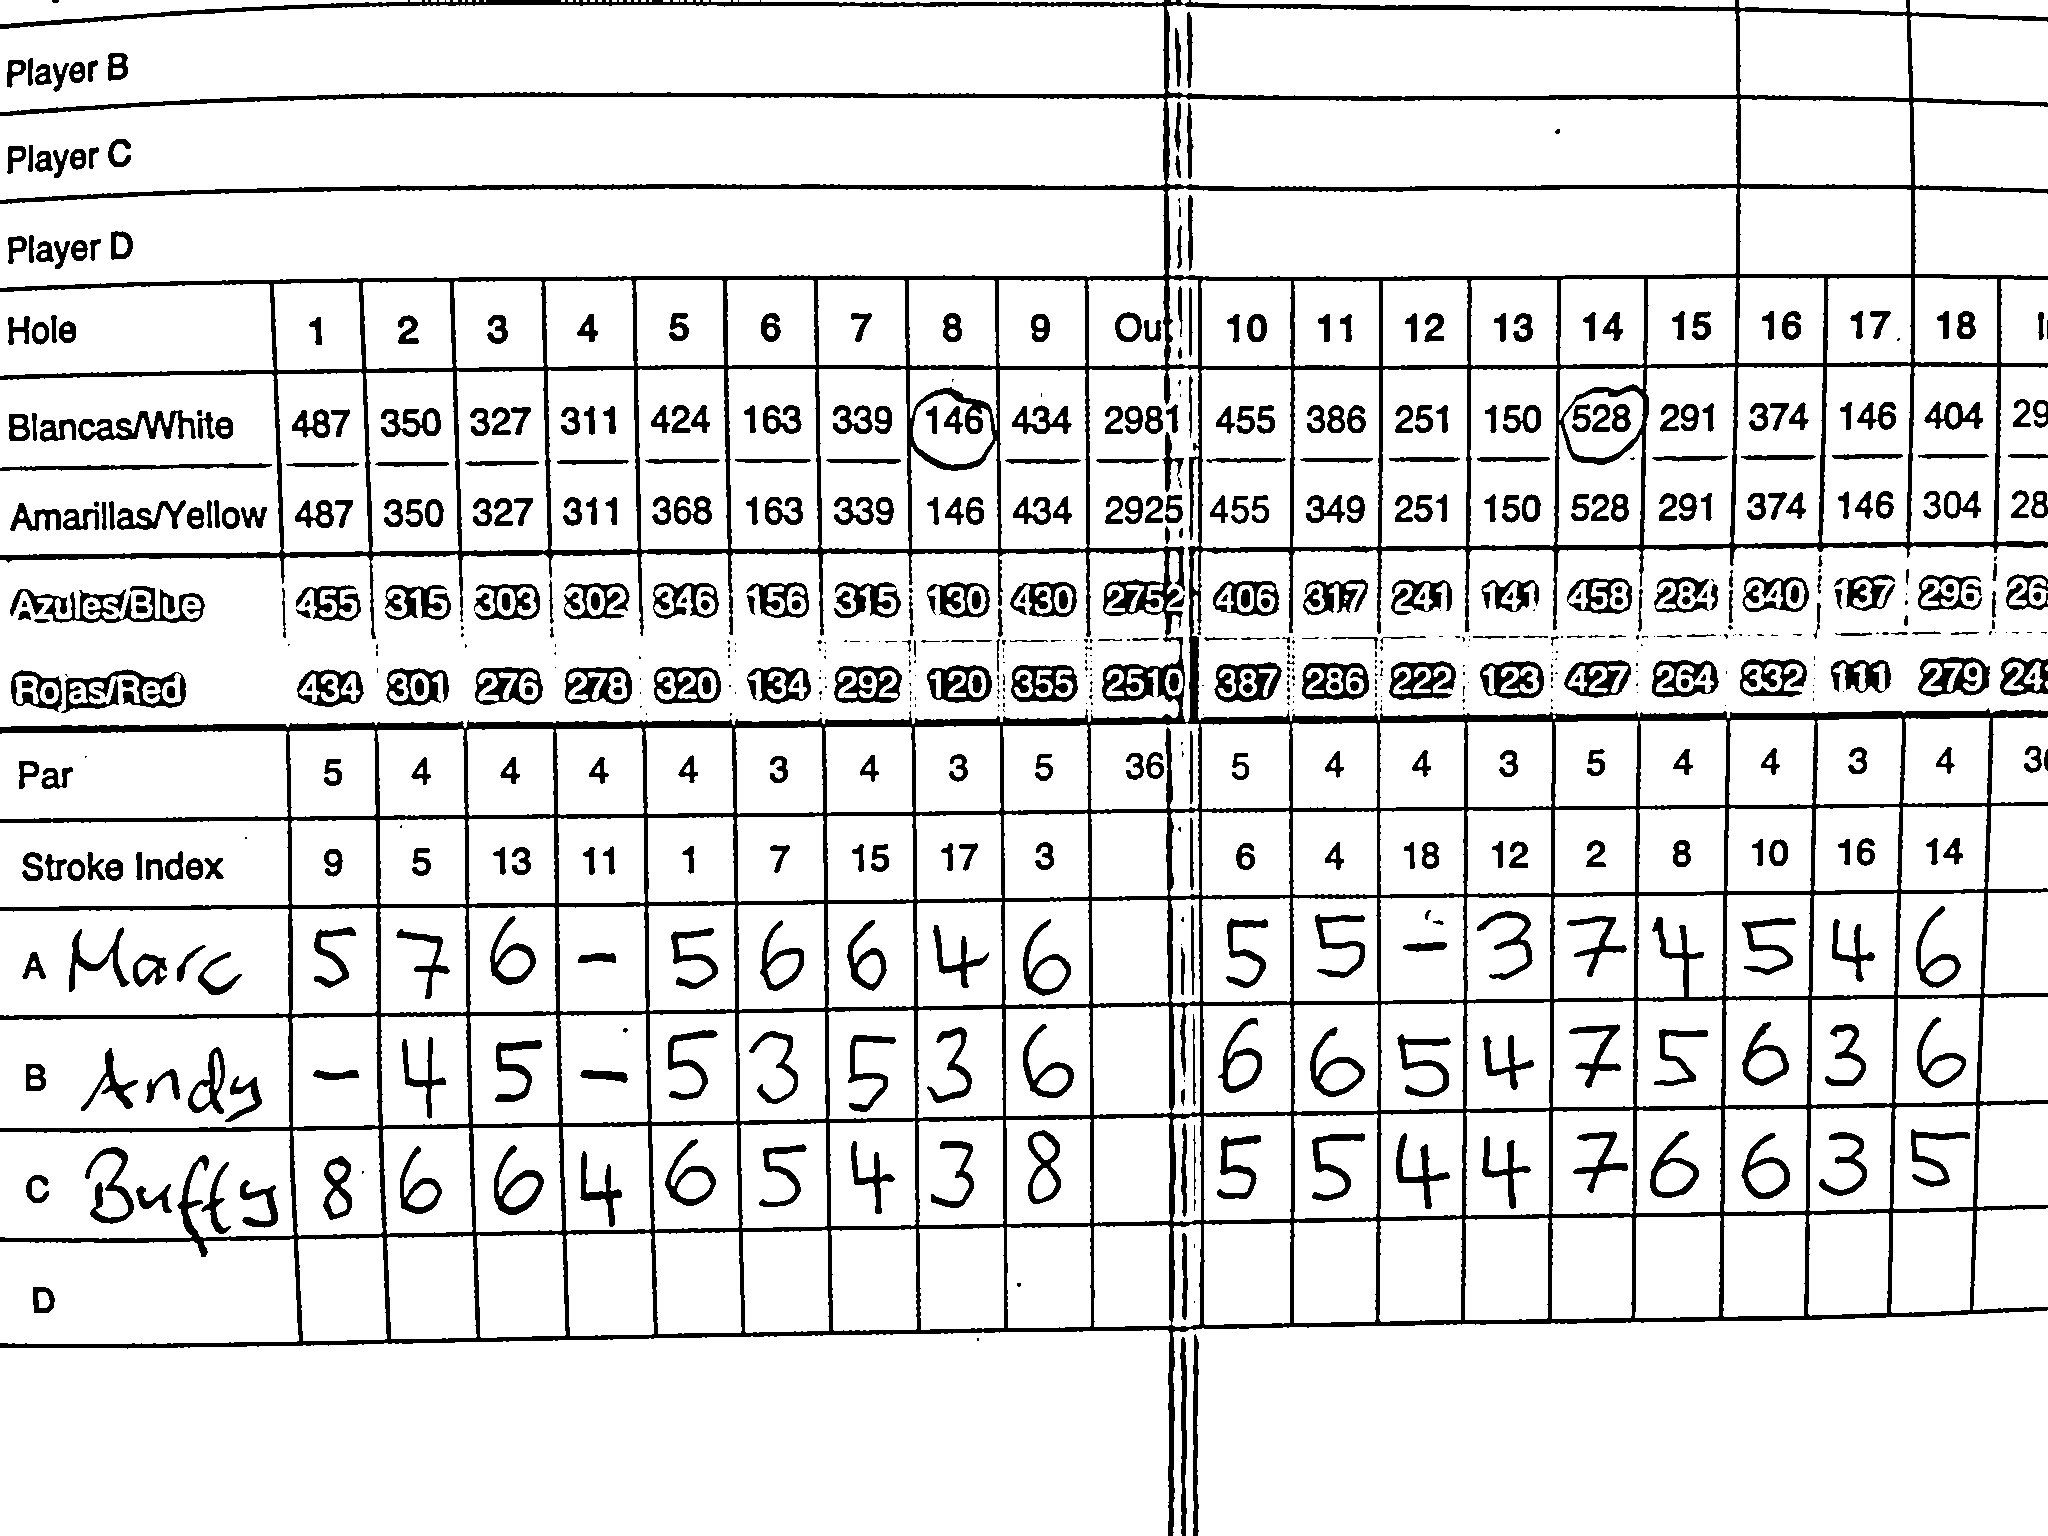 Player B
Player C
Player D
Hole 1 2 3 4 5 6 7 8 9 Out 10 11 12 13 14 15 16 17 18
Blancas/White 487 350 327 311 424 163 339 146 434 2981 455 386 251 150 528 291 374 146 404
Amarillas/Yellow 487 350 327 311 368 163 339 146 434 2925 455 349 251 150 528 291 374 146 304
Azules/Blue 455 315 303 302 346 156 315 130 430 2752 406 317 241 141 458 284 340 137 296
Rojas/Red 434 301 276 278 320 134 292 120 355 2510 387 286 222 123 427 264 332 111 279
Par 5 4 4 4 4 3 4 3 5 36 5 4 4 3 5 4 4 3 4
Stroke Index 9 5 13 11 1 7 15 17 3 6 4 18 12 2 8 10 16 14
A Marc 5 7 6 - 5 6 6 4 6 5 5 - 3 7 4 5 4 6
B Andy - 4 5 - 5 3 5 3 6 6 6 5 4 7 5 6 3 6
C Buffy 8 6 6 4 6 5 4 3 8 5 5 4 4 7 6 6 3 5
D